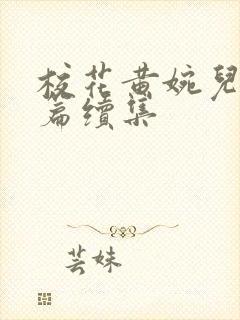 校花黄婉兒
篇續集
芸妹